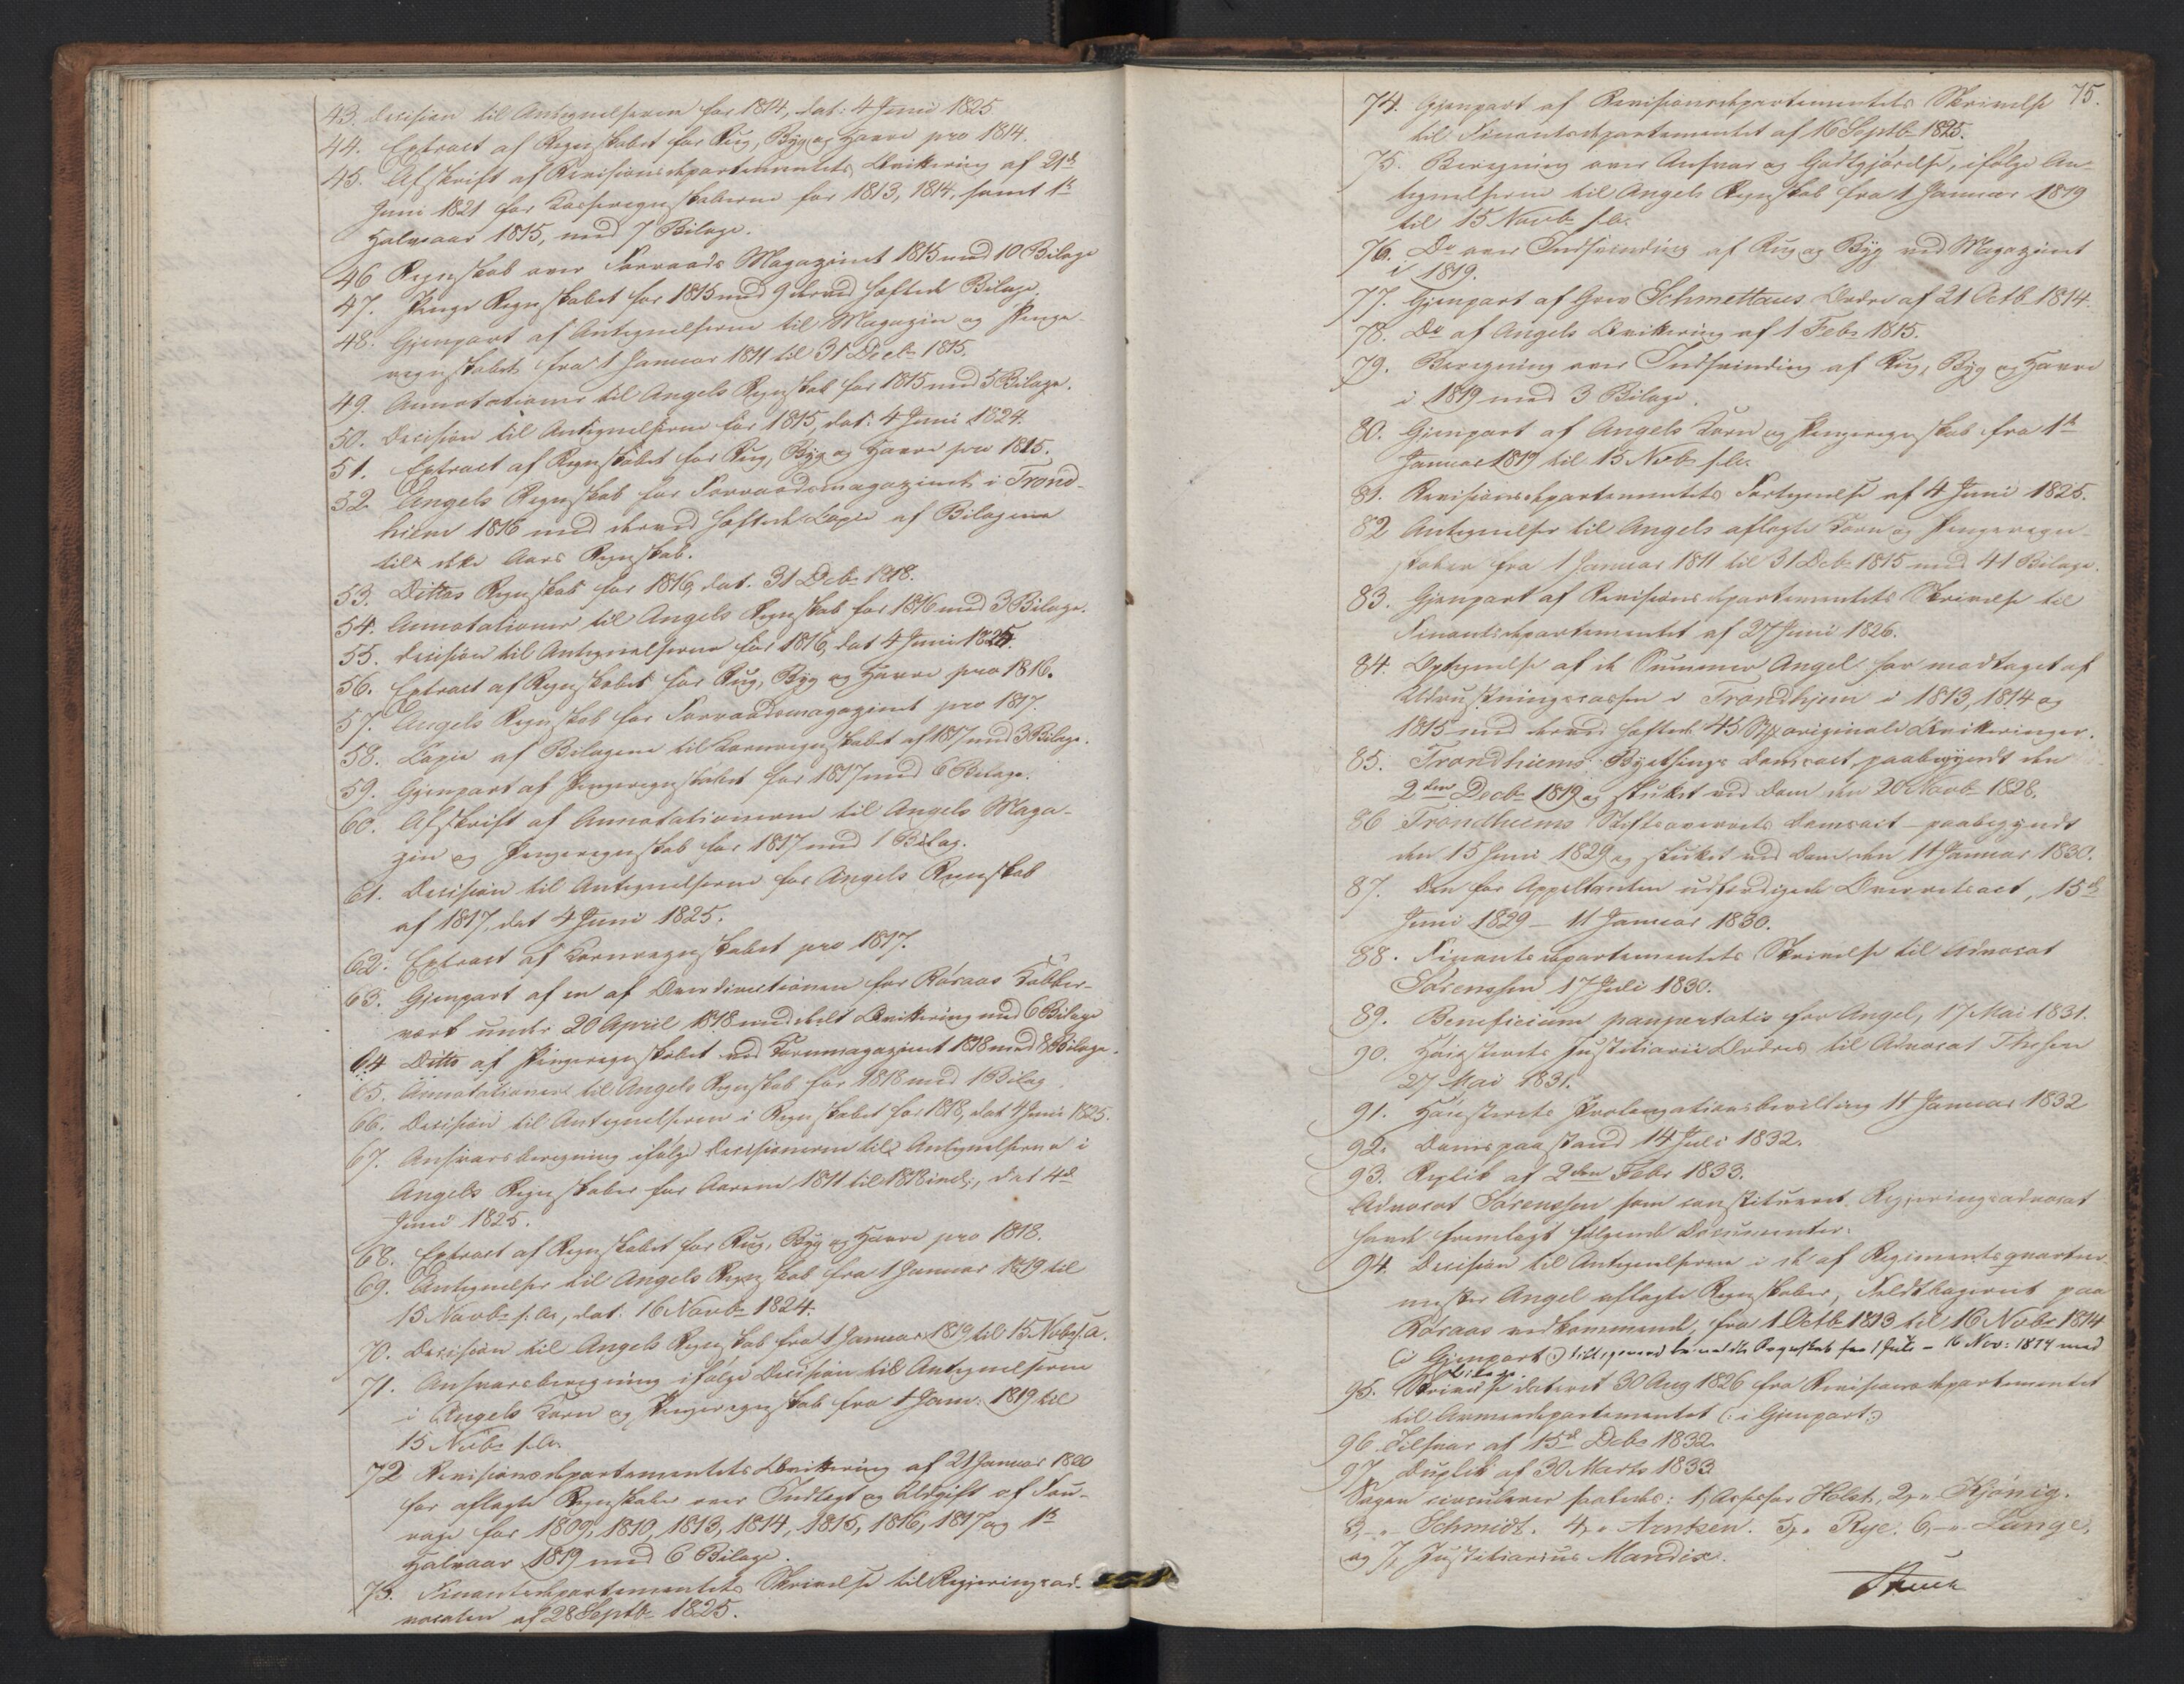 43. Decision til Antegnelserne for 1814, dat: 4 Juni 1825
44. Extract af Regnskabet for Rug, Byg og Havre pro 1814.
45. Afskrift af Revisionsdepartementets Qvittering af 21de
Juni 1821 for Casseregnskaberne for 1813, 1814 samt 1te
Halvaar 1815, med 7 Bilage.
46 Regnskab over Forraads Magazinet 1815 med 10 Bilage
47. Penge Regnskabet for 1815 med 9 derved heftede Bilage.
48. Gjenpart af Antegnelserne til Magazin og Penge-
regnskabet fra 1 Januar 1811 til 31 Decbr 1815.
49. Annotationer til Angels Regnskab for 1815 med 5 Bilage.
50. Decision til Antegnelserne for 1815, dat: 4 Juni 1824.
51. Extract af Regnskabet for Rug, Byg og Havre pro 1815.
52. Angels Regnskab for Forraadsmagazinet i Trond-
hiem 1816 med derved heftede Copie af Bilagene
til dette Aars Regnskab.
53. Dittos Regnskab for 1816, dat. 31 Decbr 1818.
54. Annotationer til Angels Regnskab for 1816 med 3 Bilage.
55. Decision til Antegnelserne for 1816, dat 4 Juni 1825.
56. Extract af Regnskabet for Rug, Byg og Havre pro 1816.
57. Angels Regnskab for Forraadsmagazinet pro 1817.
58. Copie af Bilagene til Kornregnskabet af 1817 med 3 Bilage.
59. Gjenpart af Pengeregnskabet for 1817 med 6 Bilage.
60. Afskrift af Annotationerne til Angels Maga-
zin og Pengeregnskab for 1817 med 1 Bilag.
61. Decision til Antegnelserne for Angels Regnskab
af 1817, dat 4 Juni 1825.
62. Extract af Kornregnskabet pro 1817.
63. Gjenpart af en af Overdirectionen for Röraas Kobber-
værk under 20 April 1818 meddeelt Qvittering med 6 Bilage
64 Ditto af Pengeregnskabet ved Kornmagazinet 1818 med 8 Bilage.
65. Annotationer til Angels Regnskab for 1818 med 1 Bilag.
66. Decision til Antegnelserne i Regnskabet for 1818, dat 4 Juni 1825.
67. Ansvarsberegning ifölge Decisionerne til Antegnelserne i
Angels Regnskaber for Aarene 1811 til 1818 incl:, dat 4de
Juni 1825.
68. Extract af Regnskabet for Rug, Byg og Havre pro 1818.
69. Antegnelser til Angels Regnskab fra 1 Januar 1819 til
15 Novbr s. A., dat: 16 Novbr 1824.
70. Decision til Angels Regnskab fra 1 Januar 1819 til 15 Novbr s. A.
71. Ansvarsberegning ifölge Decision til Antegnelserne
i Angels Korn og Pengeregnskab fra 1 Janr. 1819 til
15 Novbr s. A.
72 Revisionsdepartementets Qvittering af 21 Januar 1820
for aflagte Regnskaber over Indtægt og Udgift af Fou-
rage for 1809, 1810, 1813, 1814, 1815, 1816, 1817 og 1te
Halvaar 1819 med 6 Bilage.
73. Finantsdepartementets Skrivelse til Regjeringsad-
vocaten af 28 Septbr 1825.
75.
74. Gjenpart af Revisionsdepartementets Skrivelse
til Finantsdepartementet af 16 Septbr 1825.
75. Beregning over Ansvar og Godtgjörelse, ifölge An-
tegnelserne til Angels Regnskab fra 1 Januar 1819
til 15 Novbr s. A.
76. Do over Indsvinding af Rug og Byg ved Magazinet
i 1819.
77. Gjenpart af Grev Schmettaus Ordre af 21 Octbr 1814.
78. Do af Angels Qvittering af 1 Febr 1815.
79. Beregning over Indsvinding af Rug, Byg og Havre
i 1819 med 3 Bilage.
80. Gjenpart af Angels Korn og Pengeregnskab fra 1te
Januar 1819 til 15 Novbr s. A.
81. Revisionsdepartementets Fortegnelse af 4 Juni 1825.
82 Antegnelser til Angels aflagte Korn og Pengeregn-
skaber fra 1 Januar 1811 til 31 Decbr 1815 med 41 Bilage.
83. Gjenpart af Revisionsdepartementets Skrivelse til
Finantsdepartementet af 27 Juni 1826.
84. Optegnelse af de Summer Angel har modtaget af
Udrustningscassen i Trondhjem i 1813, 1814 og
1815 med derved heftede 45 originale Qvitteringer.
85. Trondhiems Byethings Domsact, paabegyndt den
2den Decbr 1819 og sluttet ved Dom den 20 Novbr 1828.
86 Trondhiems Stiftsoverrets Domsact paabegyndt
den 15 Juni 1829 og sluttet ved Dom den 11 Januar 1830.
87. Den for Appellanten udfærdigede Overretsact, 15de
Juni 1829 – 11 Januar 1830.
88. Finantsdepartementets Skrivelse til Advocat
Sörenssen 17 Juli 1830.
89. Beneficium paupertatis for Angel, 17 Mai 1831.
90. Höiesterets Justitiarii Ordres til Advocat
27 Mai 1831.
91. Höiesterets Prolongationsbevilling 11 Januar 1832
92. Domspaastand 14 Juli 1832.
93. Replik af 2den Febr 1833.
Advocat Sörenssen som constitueret Regjeringsadvocat
havde fremlagt fölgende Documenter:
94. Decision til Antegnelserne i de af Regimentsquarteer-
mester Angel aflagte Regnskaber, Feldtbageriet paa
Röraas vedkommende, fra 1 Octbr 1813 til 16 Novbr 1814
(i Gjenpart:) tilligemed Regnskab fra 1 Juli – 16 Nov: 1814 med
Bilage.
95. Skrivelse dateret 30 Aug 1826 fra Revisionsdepartementet
til Armeedepartementet (: i Gjenpart:)
96. Tilsvar af 15de Decbr 1832.
97. Duplik af 30 Marts 1833
Sagen circulerer saaledes: 1, Assessor Holst, 2, " Kjönig.
3, " Schmidt. 4, " Arntzen. 5, " Rye. 6, " Lange,
og 7, Justitiarius Mandix.